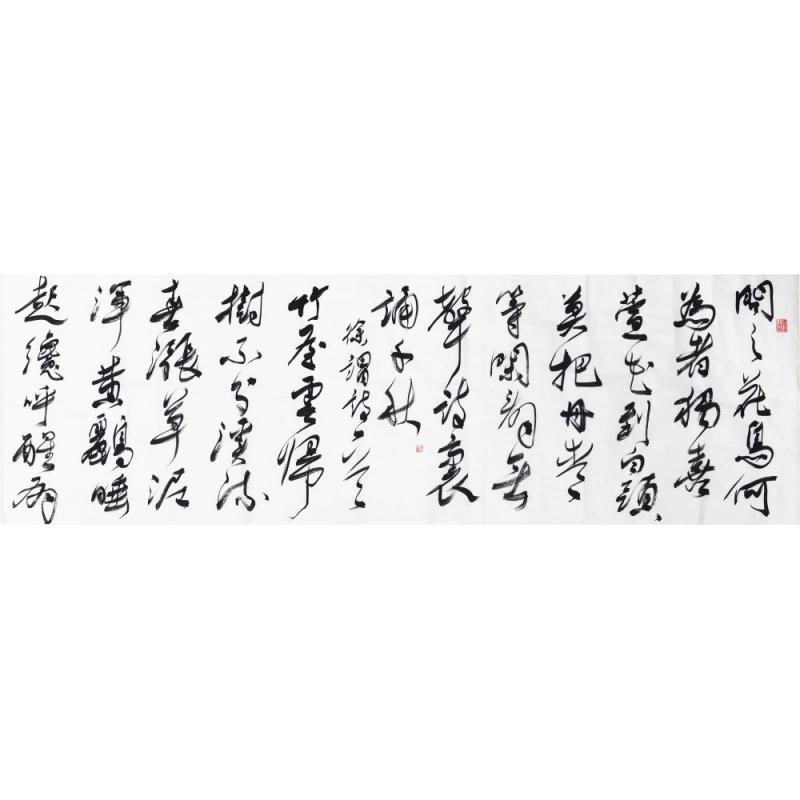 問之花鳥何
為者獨喜
萱花到白頭
莫把丹青
等閑無
聲詩裏
誦千秋
徐謂詩二首
竹屋雲歸
樹不分溪流
春漲草泥
渾黃鸝睡
起纔呼醒